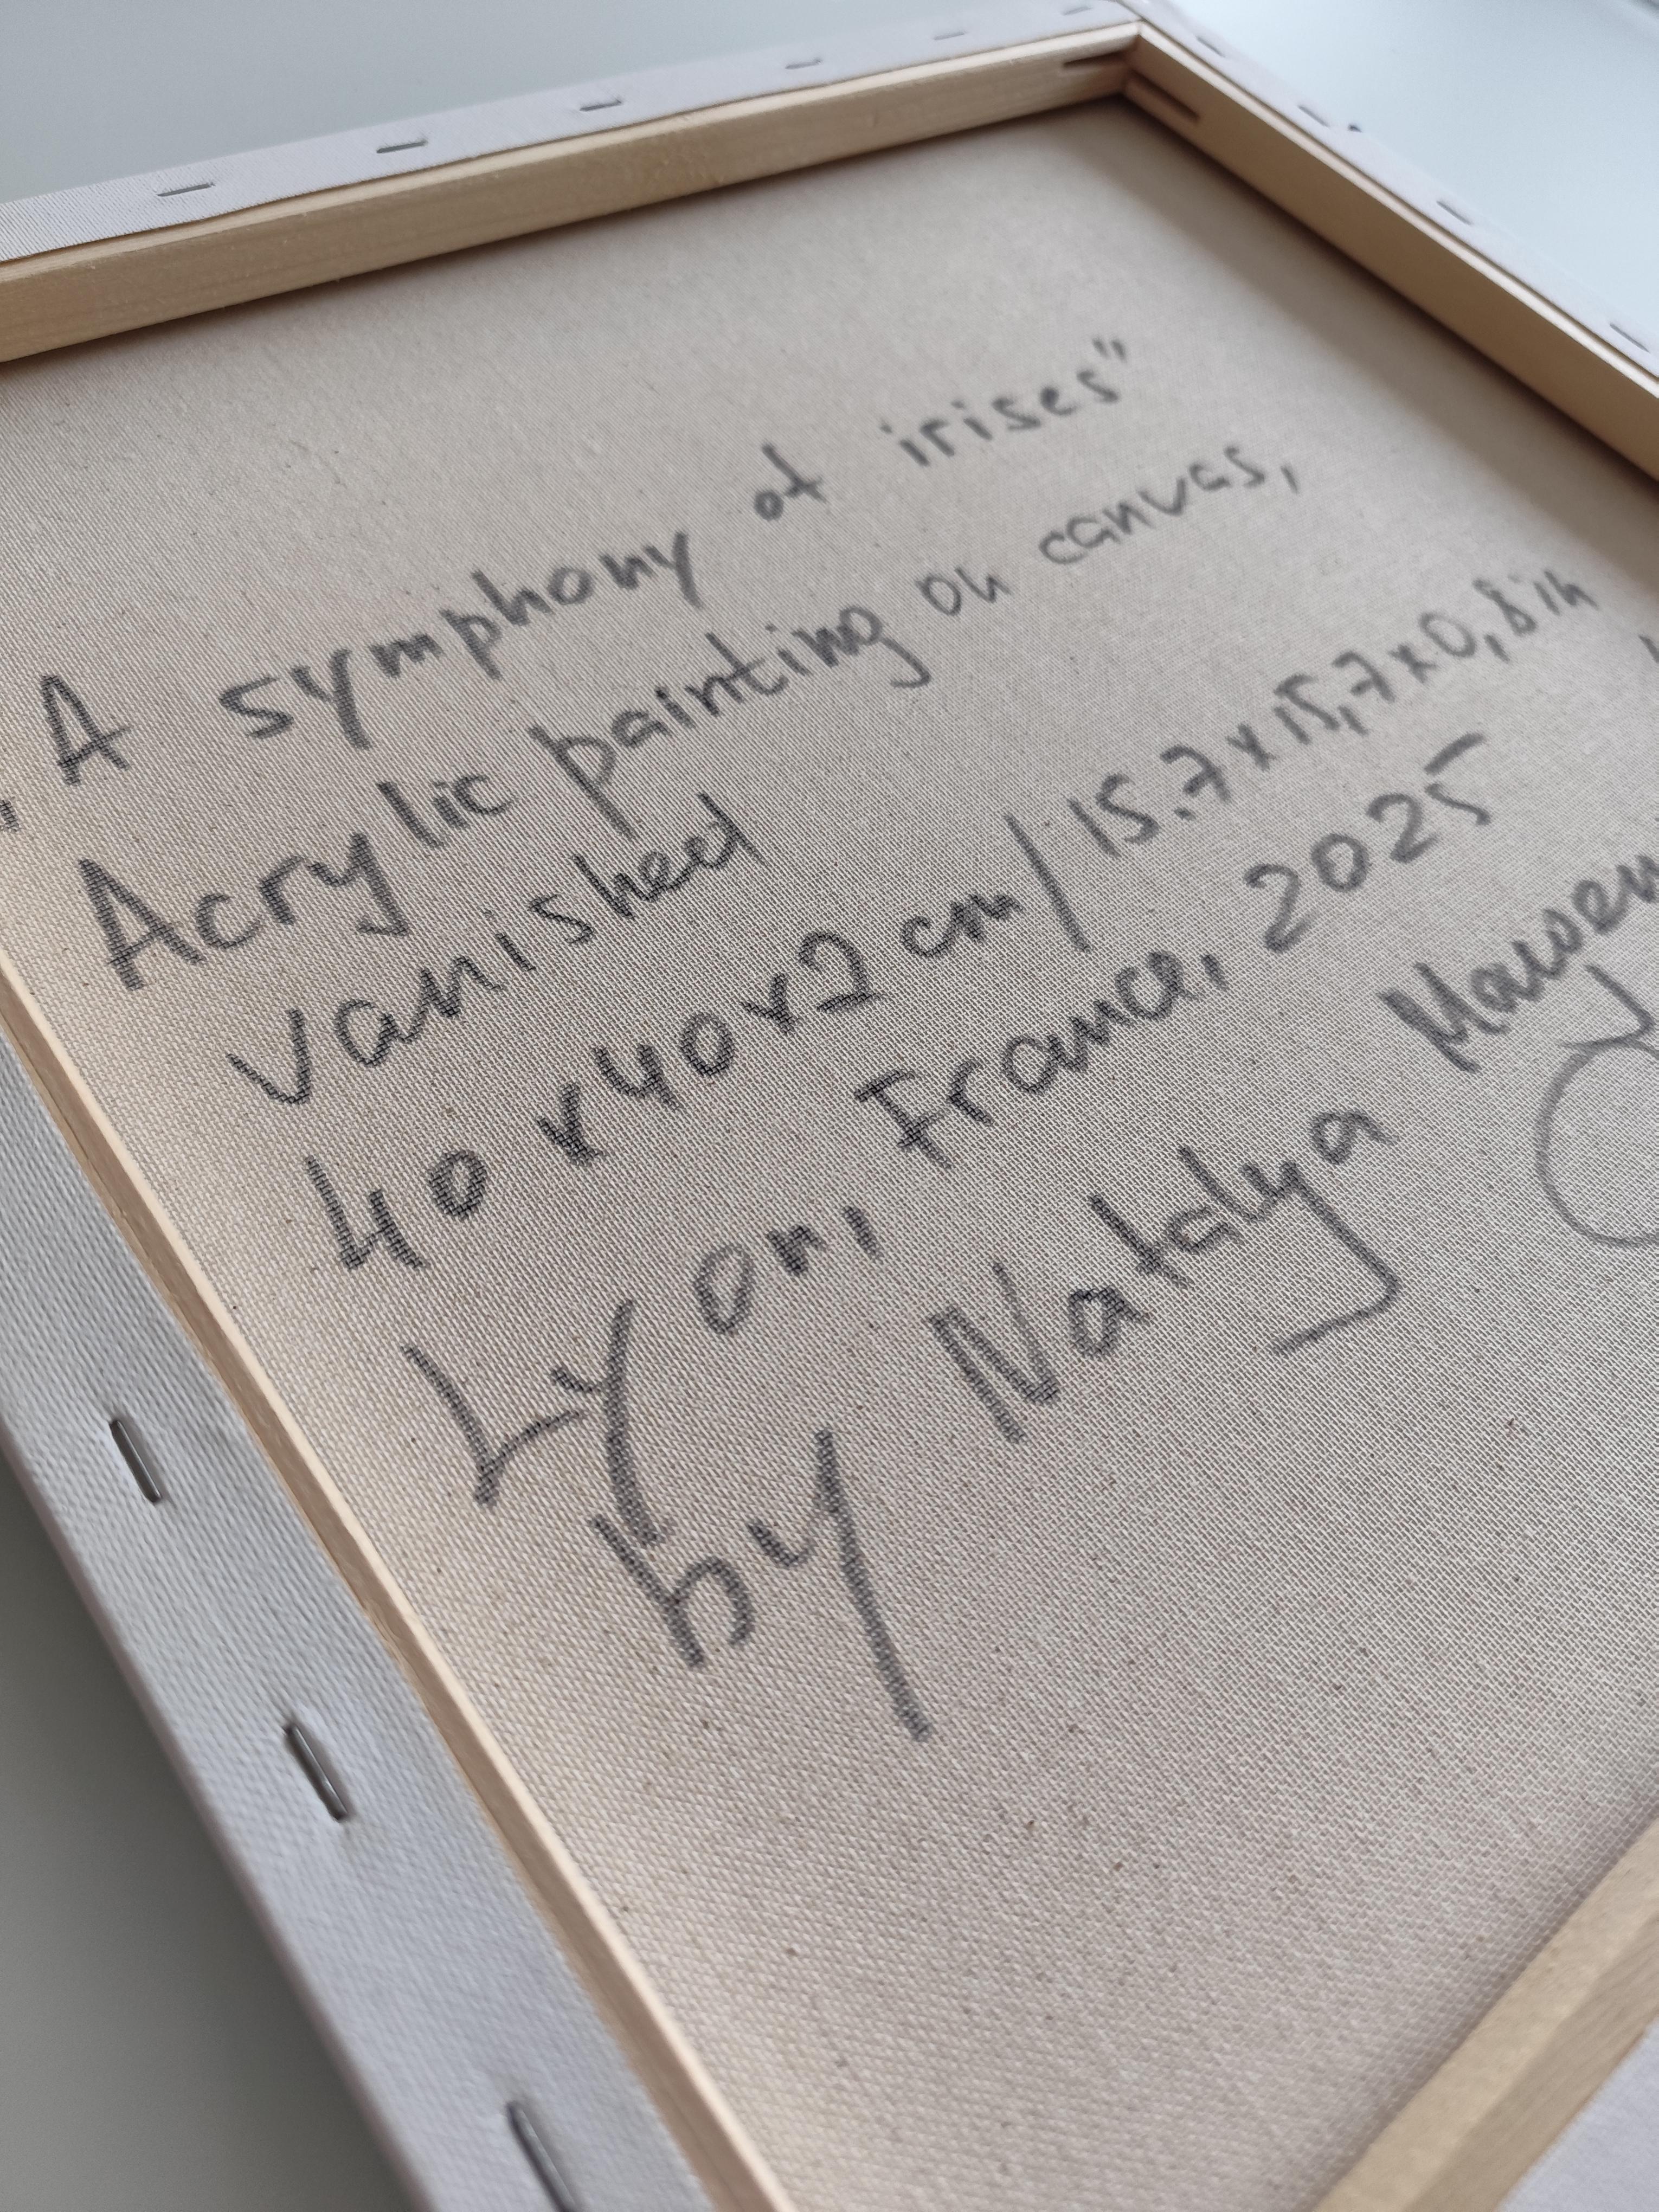 „A symphony of irises"
Acrylic painting on canvas,
vanished
40x40x2 cm/ 15.7x15,7x0,8in
Lyon, France, 2025
by Natalya